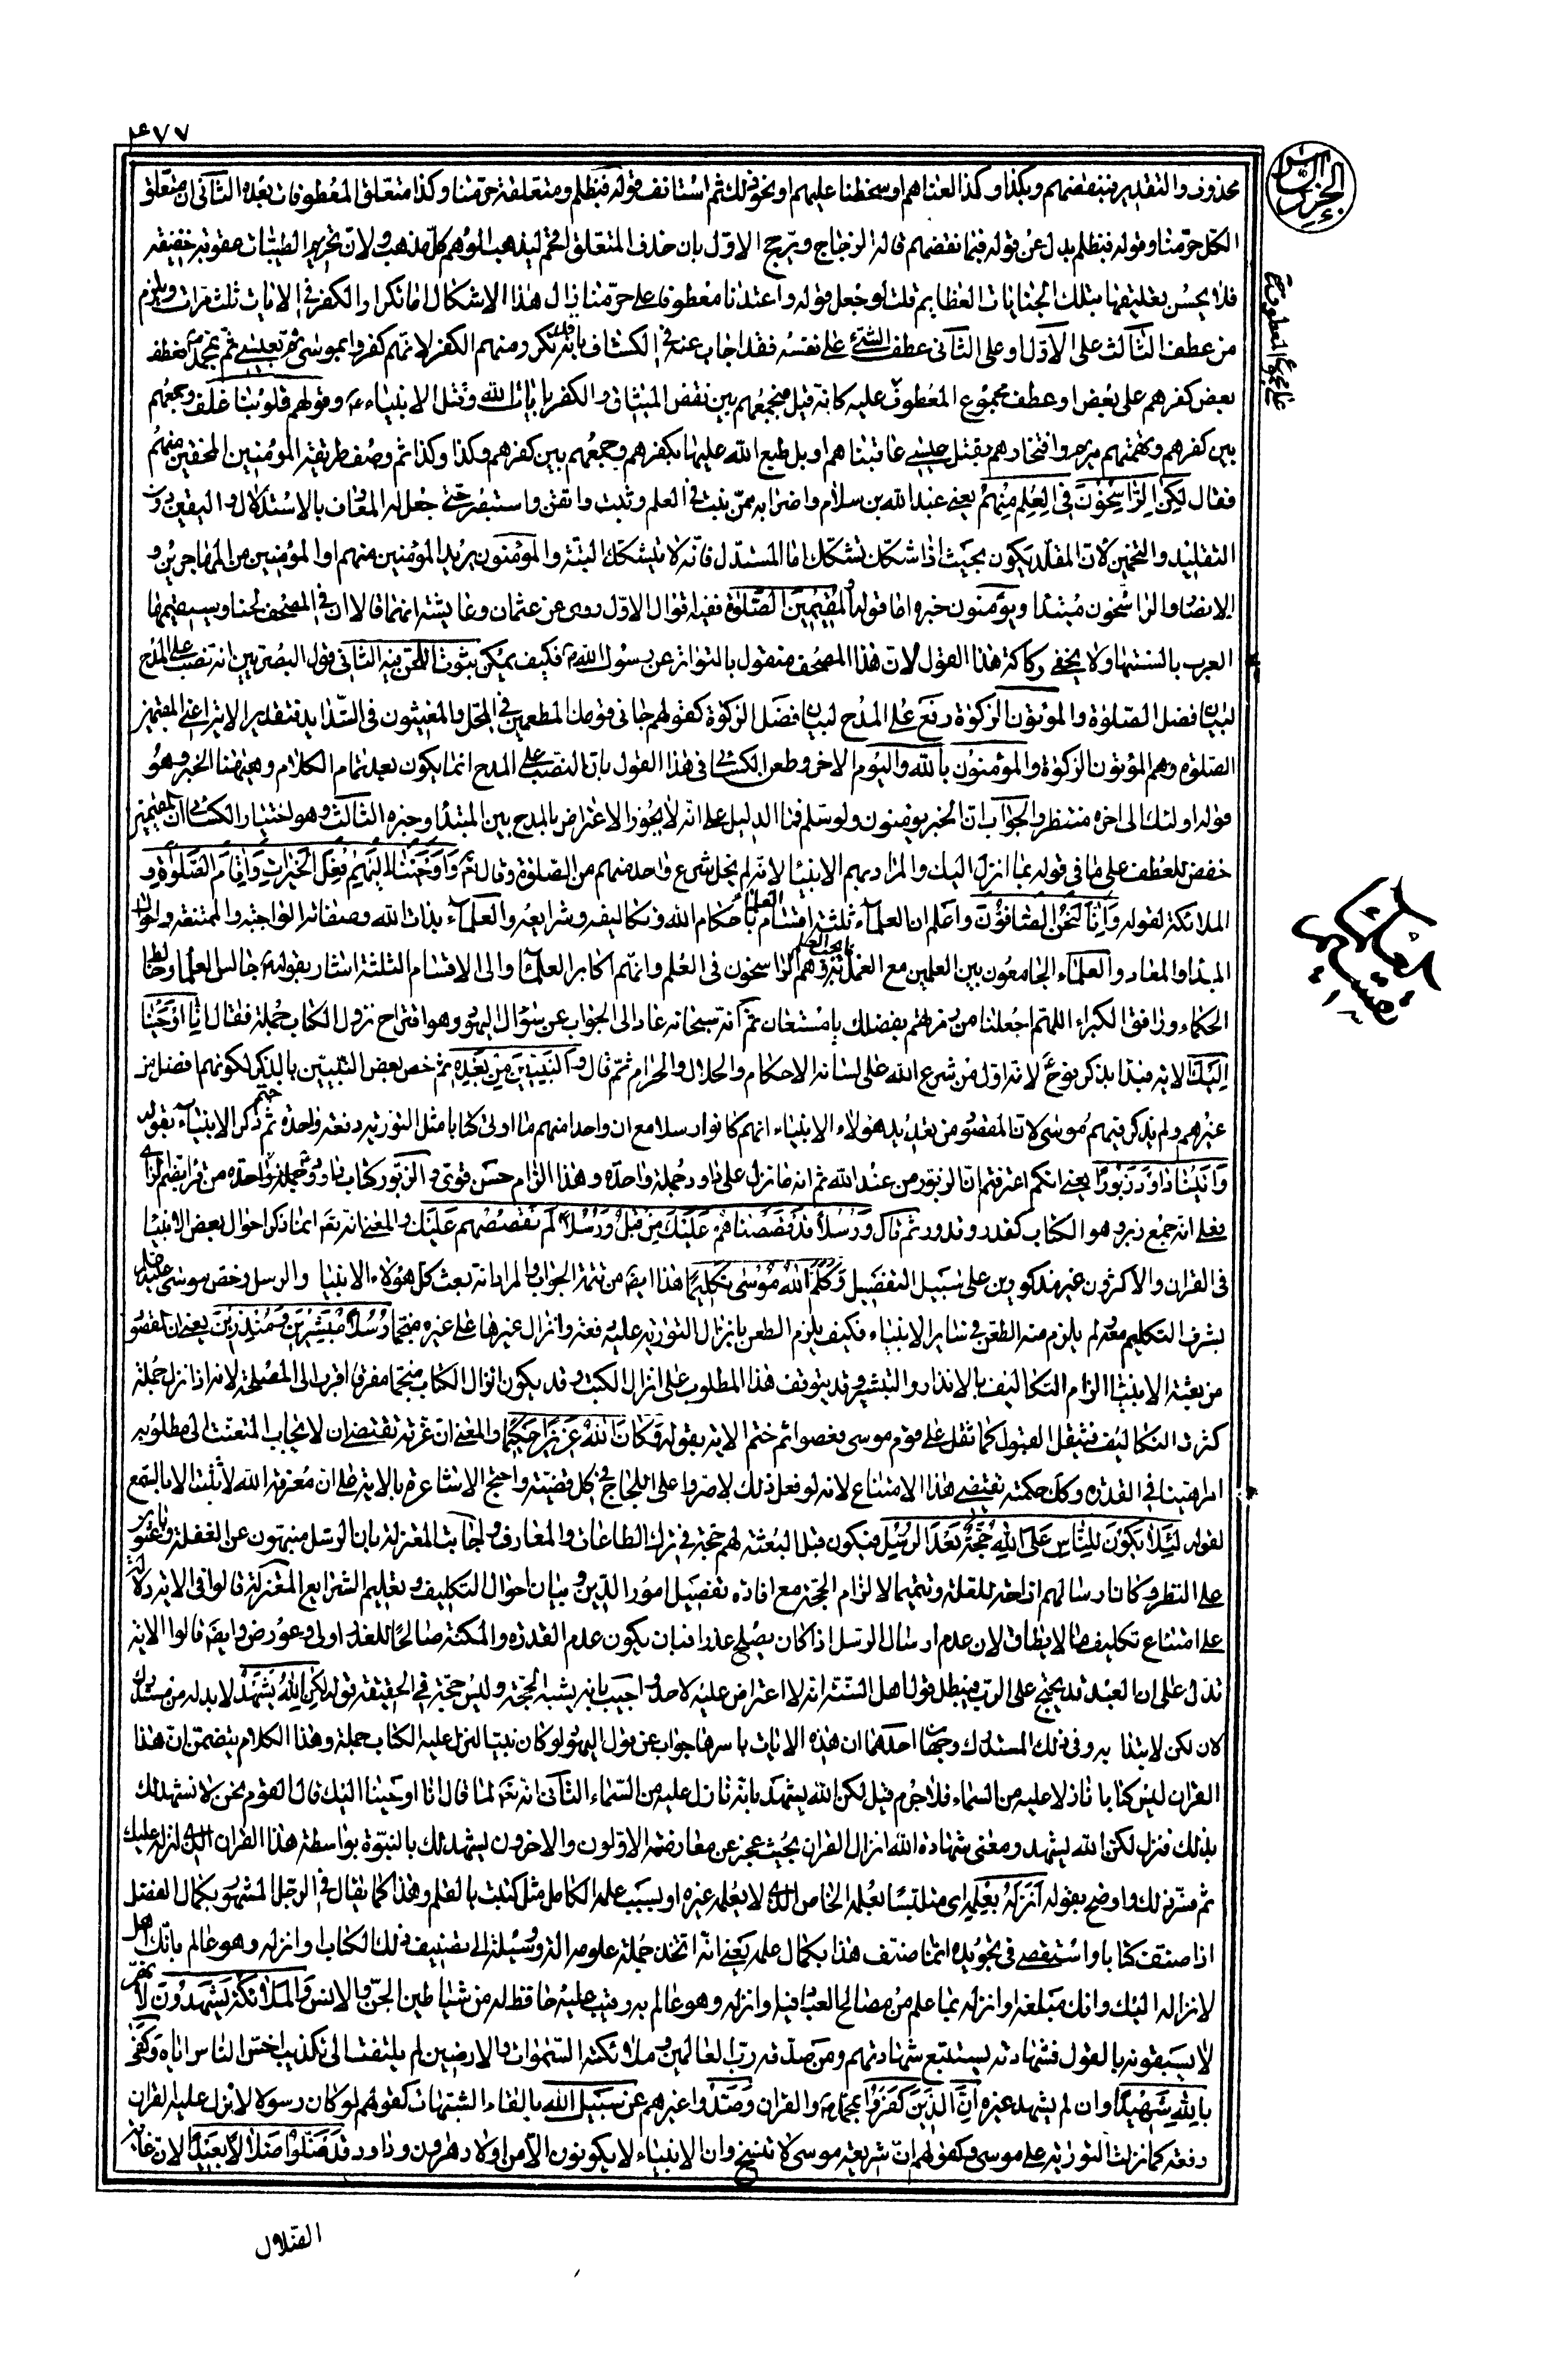 ٤٧٧
الجزء السادس
محذوف والتقدير فبنقضهم وبكذا وكذا لعناهم او سخطنا عليهم او نحو ذلك ثم استانف قوله فبظلم ومتعلقة حرمنا وكذا متعلق المعطوفات بعده الثانى ان متعلق
الكل حرمنا وقوله فبظلم بدل عن قوله فبما نقضهم قاله الزجاج ويرجح الاول بان حذف المتعلق افخم ليذهب الوهم كل مذهب ولان تحريم الطيبات عقوبة خفيفة
فلا يحسن تعليقها بتلك الجنايات العظايم قلت لو جعل قوله واعتدنا معطوفا على حرمنا زال هذا الاشكال اما تكرار الكفر فى الايات ثلث مرات ويلزم
من عطف الثالث على الاول او على الثانى عطف الشئ على نفسه فقد اجاب عنه فى الكشاف بانه قد تكرر منهم الكفر لانهم كفروا بموسى ثم بعيسى ثم بمحمد فعطف
بعض كفرهم على بعض او عطف مجموع المعطوف عليه كانه قيل فبجمعهم بين نقض الميثاق والكفر بايات الله وقتل الانبياء وقولهم قلوبنا غلف وجمعهم
بين كفرهم وبهتهم مريم وافتخارهم بقتل عيسى عاقبناهم او بل طبع الله عليها بكفرهم وجمعهم بين كفرهم وكذا وكذا ثم وصف طريقة المؤمنين المحقين منهم
فقال لكن الراسخون فى العلم منهم يعنى عبد الله بن سلام واضرابه ممن ثبت فى العلم وثبت واتقن واستبصر حتى جعل له المعارف بالاستدلال واليقين دون
التقليد والتخمين لان المقلد يكون بحيث اذا شكك تشكك اما المستدل فانه لا يتشكك البتة والمؤمنون يريد المؤمنين منهم او المؤمنين من المهاجرين و
الانصار والراسخون مبتدا ويؤمنون خبره اما قوله والمقيمين الصلوة ففيه اقوال الاول روى عن عثمان وعايشة انهما قالا ان فى المصحف لحنا وسيقيمها
العرب بالسنتها ولا يخفى ركاكة هذا القول لان هذا المصحف منقول بالتواتر عن رسول الله فكيف يمكن ثبوت اللحن فيه الثانى قول البصريين انه نصب على المدح
لبيان فضل الصلوة والمؤتون الزكوة رفع على المدح لبيان فضل الزكوة كقولهم جانى قومك المطعمين فى المحل والمغيثون فى الشدايد فتقدير الاية اعنى المقيمين
الصلوة وهم المؤتون الزكوة والمؤمنون بالله واليوم الاخر وطعن الكسائى فى هذا القول بان النصب على المدح انما يكون بعد تمام الكلام وههنا الخبر وهو
قوله اولئك الى اخره منتظر والجواب ان الخبر يؤمنون ولو سلم فما الدليل على انه لا يجوز الاعتراض بالمدح بين المبتدا وخبره الثالث وهو اختيار الكسائى ان المقيمين
خفض للعطف على ما فى قوله بما انزل اليك والمراد بهم الانبيا لانه لم يخل شرع واحد منهم من الصلوة وقال واوحينا اليهم فعل الخيرات واقام الصلوة و
الملائكة لقوله وانا لنحن الصافون واعلم ان العلماء ثلثة اقسام العلماء باحكام الله وتكاليفه وشرايعه والعلماء بذات الله وصفاته الواجبة والممتنعة واحوال
المبدا والمعاد والعلماء الجامعون بين العلمين مع العمل بما يجب العلم به وهم الراسخون فى العلم وانهم اكابر العلماء والى الاقسام الثلثة اشار بقوله جالس العلماء وخالط
الحكماء ورافق الكبراء اللهم اجعلنا من زمرتهم بفضلك يا مستعان ثم انه سبحانه عاد الى الجواب عن سؤال اليهود وهو اقتراح نزول الكتاب جملة فقال انا اوحينا
اليك الاية فبدا بذكر نوح لانه اول من شرع الله على لسانه الاحكام والحلال والحرام ثم قال والنبيين من بعده ثم خص بعض النبيين بالذكر لكونهم افضل من
غيرهم ولم يذكر فيهم موسى لان المقصود من تعديد هؤلاء الانبياء انهم كانوا رسلا مع ان واحدا منهم ما اوتى كتابا مثل التورية دفعة واحدة ثم ختم ذكر الانبياء بقوله
واتينا داود زبورا يعنى انكم اعترفتم ان الزبور من عند الله ثم انه ما نزل على داود جملة واحدة وهذا الزام حسن قوى والزبور كتاب داود جملة واحدة من قرا بضم الزاى
فعلى انه جمع زبر وهو الكتاب كقدر وقدور ثم قال ورسلا قد قصصناهم عليك من قبل ورسلا لم نقصصهم عليك والمعنى انه تعالى انما ذكر احوال بعض الانبيا
فى القران والاكثرون غير مذكورين على سبيل التفصيل وكلم الله موسى تكليما هذا ايضا من تتمة الجواب والمراد انه بعث كل هؤلاء الانبيا والرسل وخص موسى عليه السلام
بشرف التكليم معه ولم يلزم منه الطعن فى سائر الانبياء فكيف يلزم الطعن بانزال التورية عليه دفعة وانزال غيرها على غيره منجما رسلا مبشرين ومنذرين يعنى ان المقصود
من بعثة الانبيا الزام التكاليف بالانذار والتبشير وقد يتوقف هذا المطلوب على انزال الكتب وقد يكون انزال الكتاب منجما مفرقا اقرب الى المصلحة لانه اذا نزل جملة
كثرت التكاليف فيثقل القبول كما ثقل على قوم موسى فعصوا ثم ختم الاية بقوله وكان الله عزيزا حكيما والمعنى ان عزته تقتضى ان لا يجاب المتعنت الى مطلوبه
امرا هينا فى القدرة وكذا حكمته تقتضى هذا الامتناع لانه لو فعل ذلك لاصروا على اللجاج فى كل قضية واحتج الاشاعرة بالاية على ان معرفة الله لا تثبت الا بالسمع
لقوله لئلا يكون للناس على الله حجة بعد الرسل فيكون قبل البعثة لهم حجة فى ترك الطاعات والمعارف واجابت المعتزلة بان الرسل منبهون عن الغفلة وباعثون
على النظر وكان ارسالهم ازاحة للعلة وتتميما لالزام الحجة مع افادة تفصيل امور الدين وبيان احوال التكليف وتعليم الشرايع المعتزلة قالوا فى الاية دلالة
على امتناع تكليف ما لا يطاق لان عدم ارسال الرسل اذا كان يصلح عذرا فبان يكون عدم القدرة والمكنة صالحا للعذر اولى وعورض وايضا قالوا الاية
تدل على ان العبد قد يحتج على الرب فيبطل قول اهل السنة انه لا اعتراض عليه لاحد واجيب بانه يشبه الحجة وليس حجة فى الحقيقة قوله لكن الله يشهد لا بد له من مستدرك
لان لكن لا يبتدا به وفى ذلك المستدرك وجهان احدهما ان هذه الايات باسرها جواب عن قول اليهود لو كان نبيا لنزل عليه الكتاب جملة وهذا الكلام يتضمن ان هذا
القران ليس كتابا نازلا عليه من السماء فلا جرم قيل لكن الله يشهد بانه نازل عليه من السماء الثانى انه تعالى لما قال انا اوحينا اليك قال القوم نحن لا نشهد لك
بذلك فنزل لكن الله يشهد ومعنى شهادة الله انزال القران بحيث عجز عن معارضته الاولون والاخرون ليشهد لك بالنبوة بواسطة هذا القران الذى انزله عليك
ثم فسر ذلك واوضح بقوله انزله بعلمه اى متلبسا بعلمه الخاص الذى لا يعلمه غيره او بسبب علمه الكامل مثل كتبت بالقلم وهذا كما يقال فى الرجل المشهور بكمال الفضل
اذا صنف كتابا واستقصى فى تجويده انما صنف هذا بكمال علمه يعنى انه اتخذ جملة علومه الة ووسيلة الى تصنيف ذلك الكتاب او انزله وهو عالم بانك اهل
لانزاله اليك وانك مبلغه او انزله بما علم من مصالح العباد فيه او انزله وهو عالم به رقيب عليه حافظ له من شياطين الجن والانس والملائكة يشهدون لانهم
لا يسبقونه بالقول فشهادته يستتبع شهادتهم ومن صدقه رب العالمين وملائكة السموات والارضين لم يلتفت الى تكذيب اخس الناس اياه وكفى
بالله شهيدا وان لم يشهد غيره ان الذين كفروا بمحمد والقران وصدوا غيرهم عن سبيل الله بالقاء الشبهات كقولهم لو كان رسولا لانزل عليه القران
دفعة كما نزلت التورية على موسى وكقولهم ان شريعة موسى لا تنسخ وان الانبياء لا يكونون الا من اولاد هرون وداود قد ضلوا ضلالا بعيدا لان غاية
الضلال